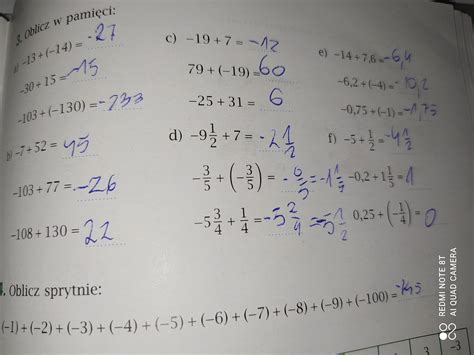 3. Oblicz w pamięci:
a) -13 + (-14) = -27
-30 + 15 = -15
-103 + (-130) = -233
b) -7 + 52 = 45
-103 + 77 = -26
-108 + 130 = 22
c) -19 + 7 = -12
79 + (-19) = 60
-25 + 31 = 6
d) -9 1/2 + 7 = -2 1/2
-3/5 + (-3/5) = -6/5 = -1 1/5
-5 3/4 + 1/4 = -5 2/4 = -5 1/2
e) -14 + 7,6 = -6,4
-6,2 + (-4) = -10,2
-0,75 + (-1) = -1,75
f) -5 + 1/2 = -4 1/2
-0,2 + 1 1/5 = 1
0,25 + (-1/4) = 0
. Oblicz sprytnie:
(-1) + (-2) + (-3) + (-4) + (-5) + (-6) + (-7) + (-8) + (-9) + (-100) = -145
3
-3
REDMI NOTE 8T
AI QUAD CAMERA